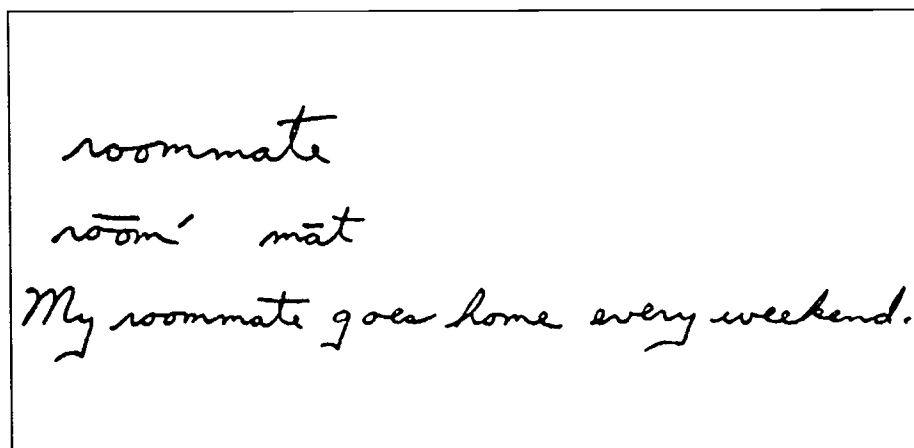 roommate
ro͞om′ māt
My roommate goes home every weekend.